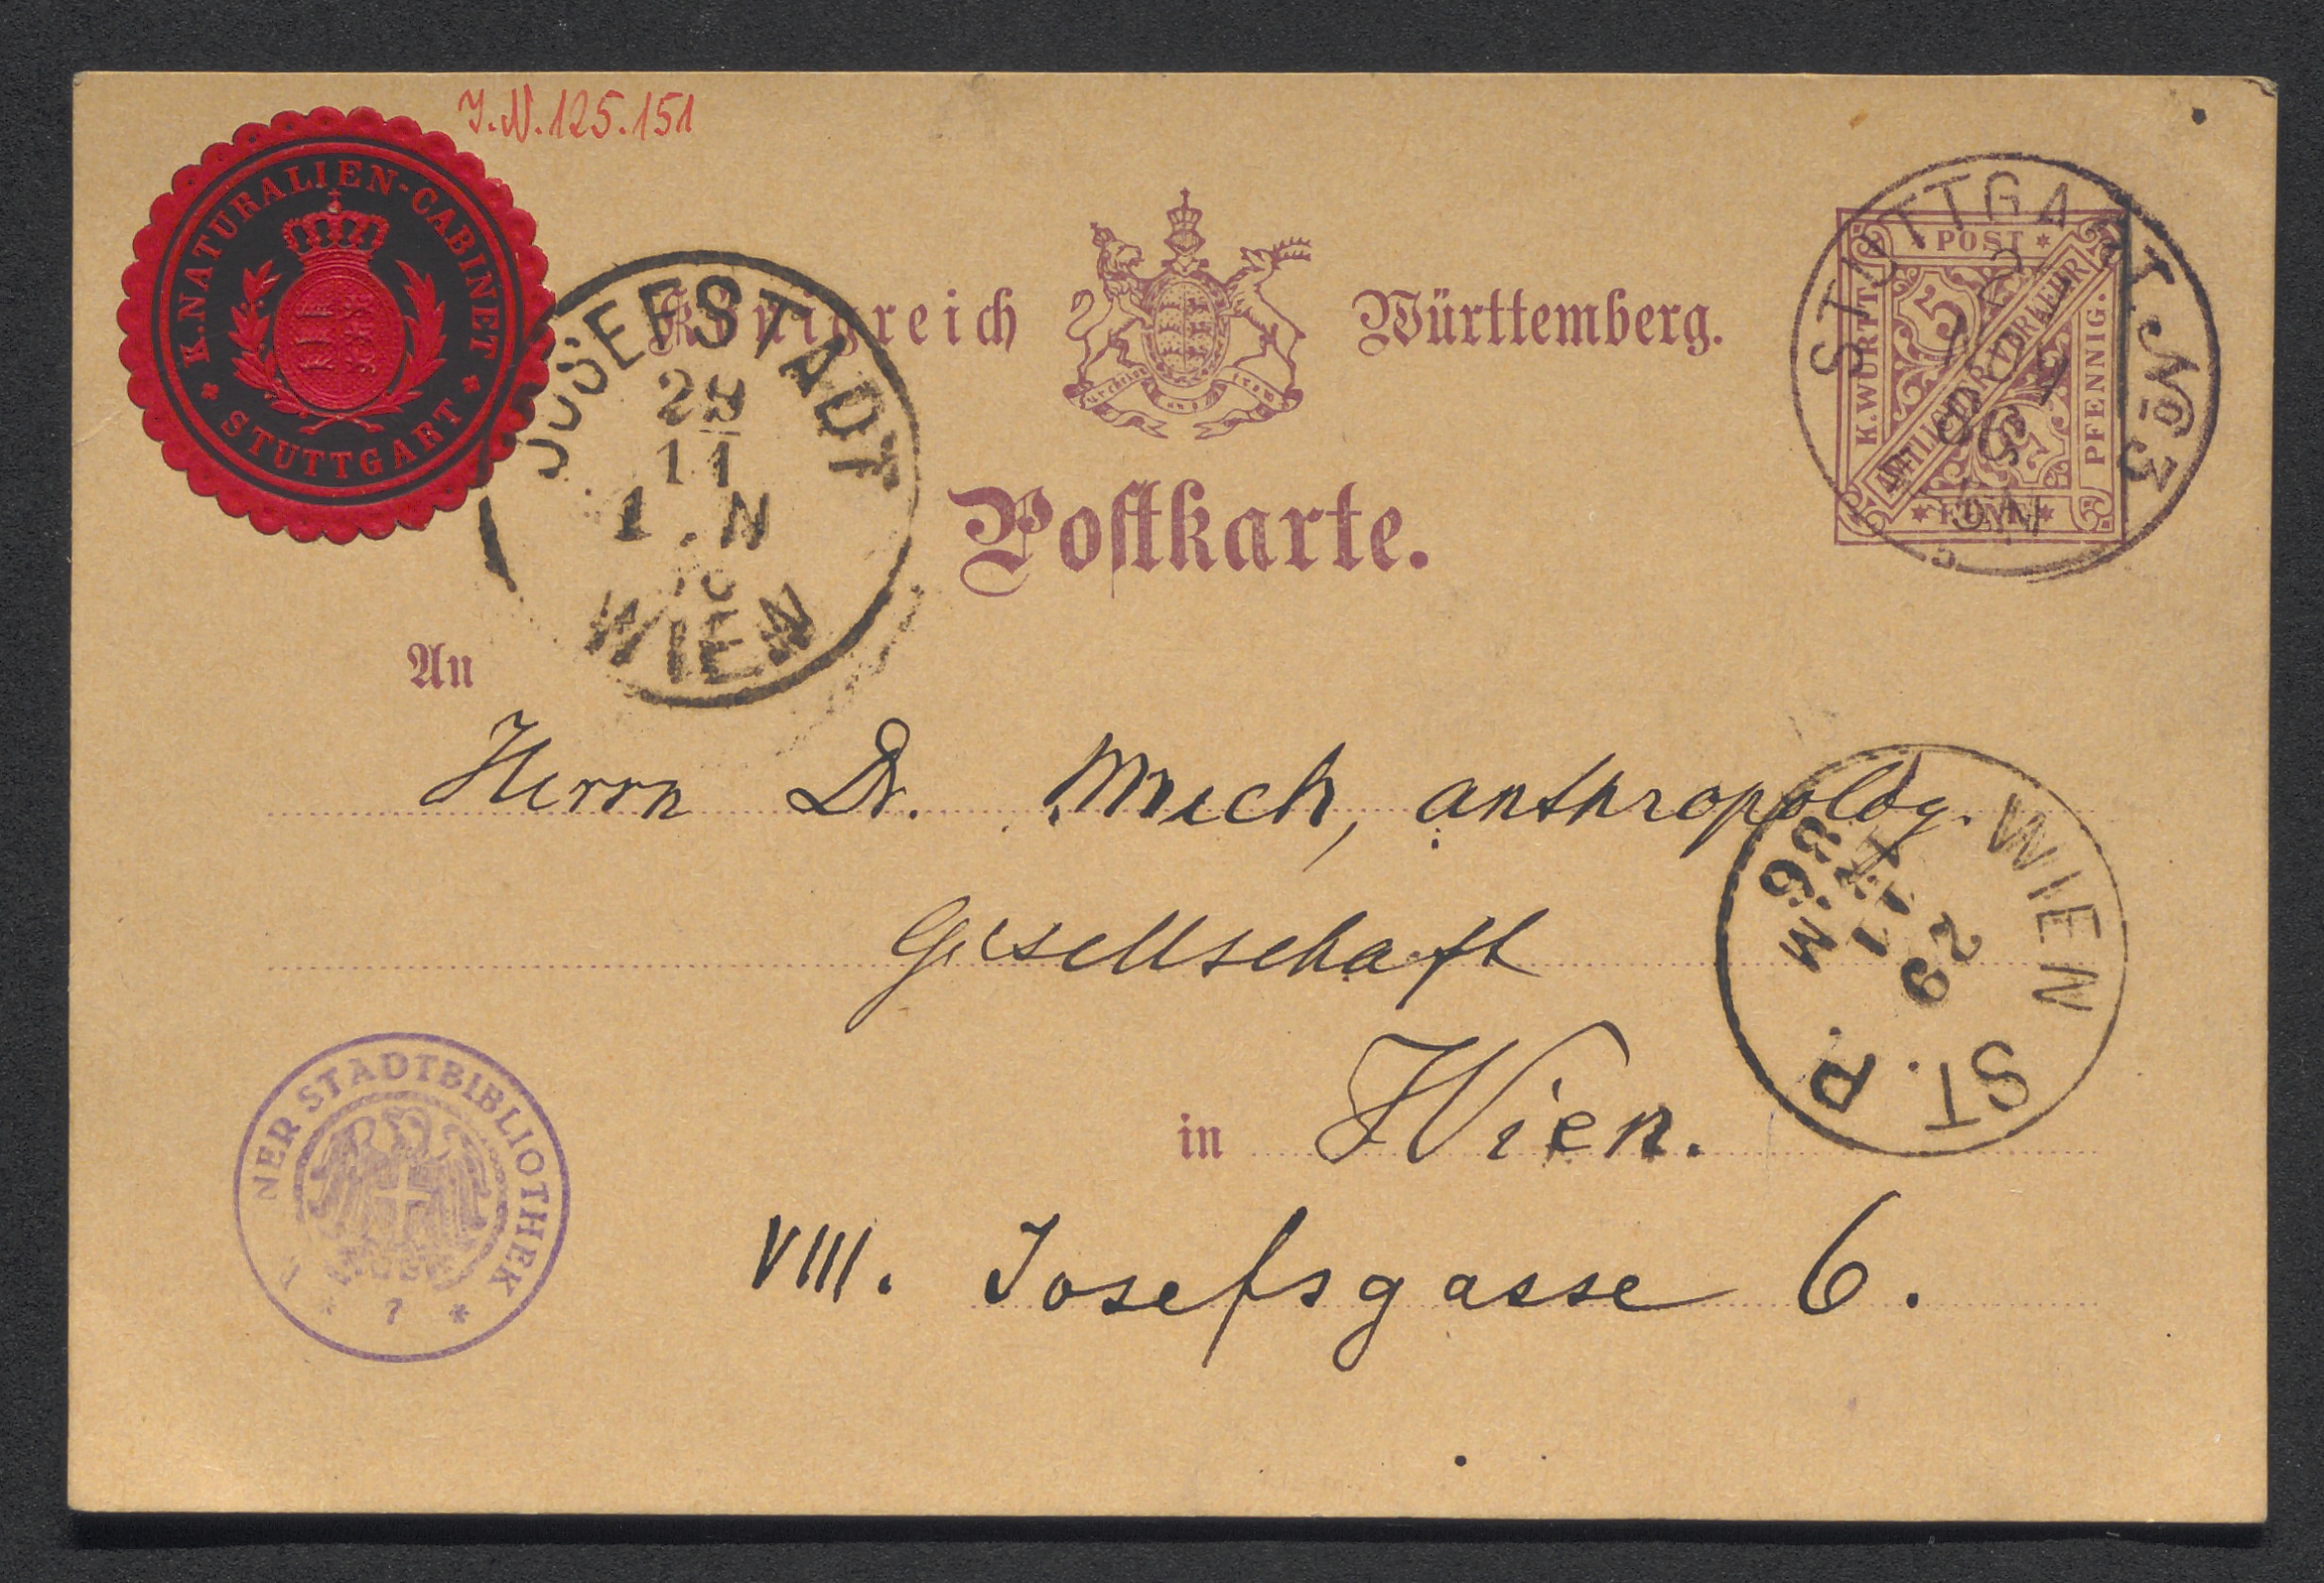 J.N. 125.151
* K. NATURALIEN-CABINET *
STUTTGART
Königreich Württemberg.
Postkarte.
* POST *
K. WÜRTT.
AMTLICHER VERKEHR
PFENNIG.
* FÜNF *
5
5
STUTTGART. No 3
JOSEFSTADT
11
1. N
WIEN
An
Herrn Dr. Much, anthropolog.
Gesellschaft
in Wien.
VIII. Josefsgasse 6.
WIEN
ST. P.
29
11
86
M
NER STADTBIBLIOTHEK
* 7 *